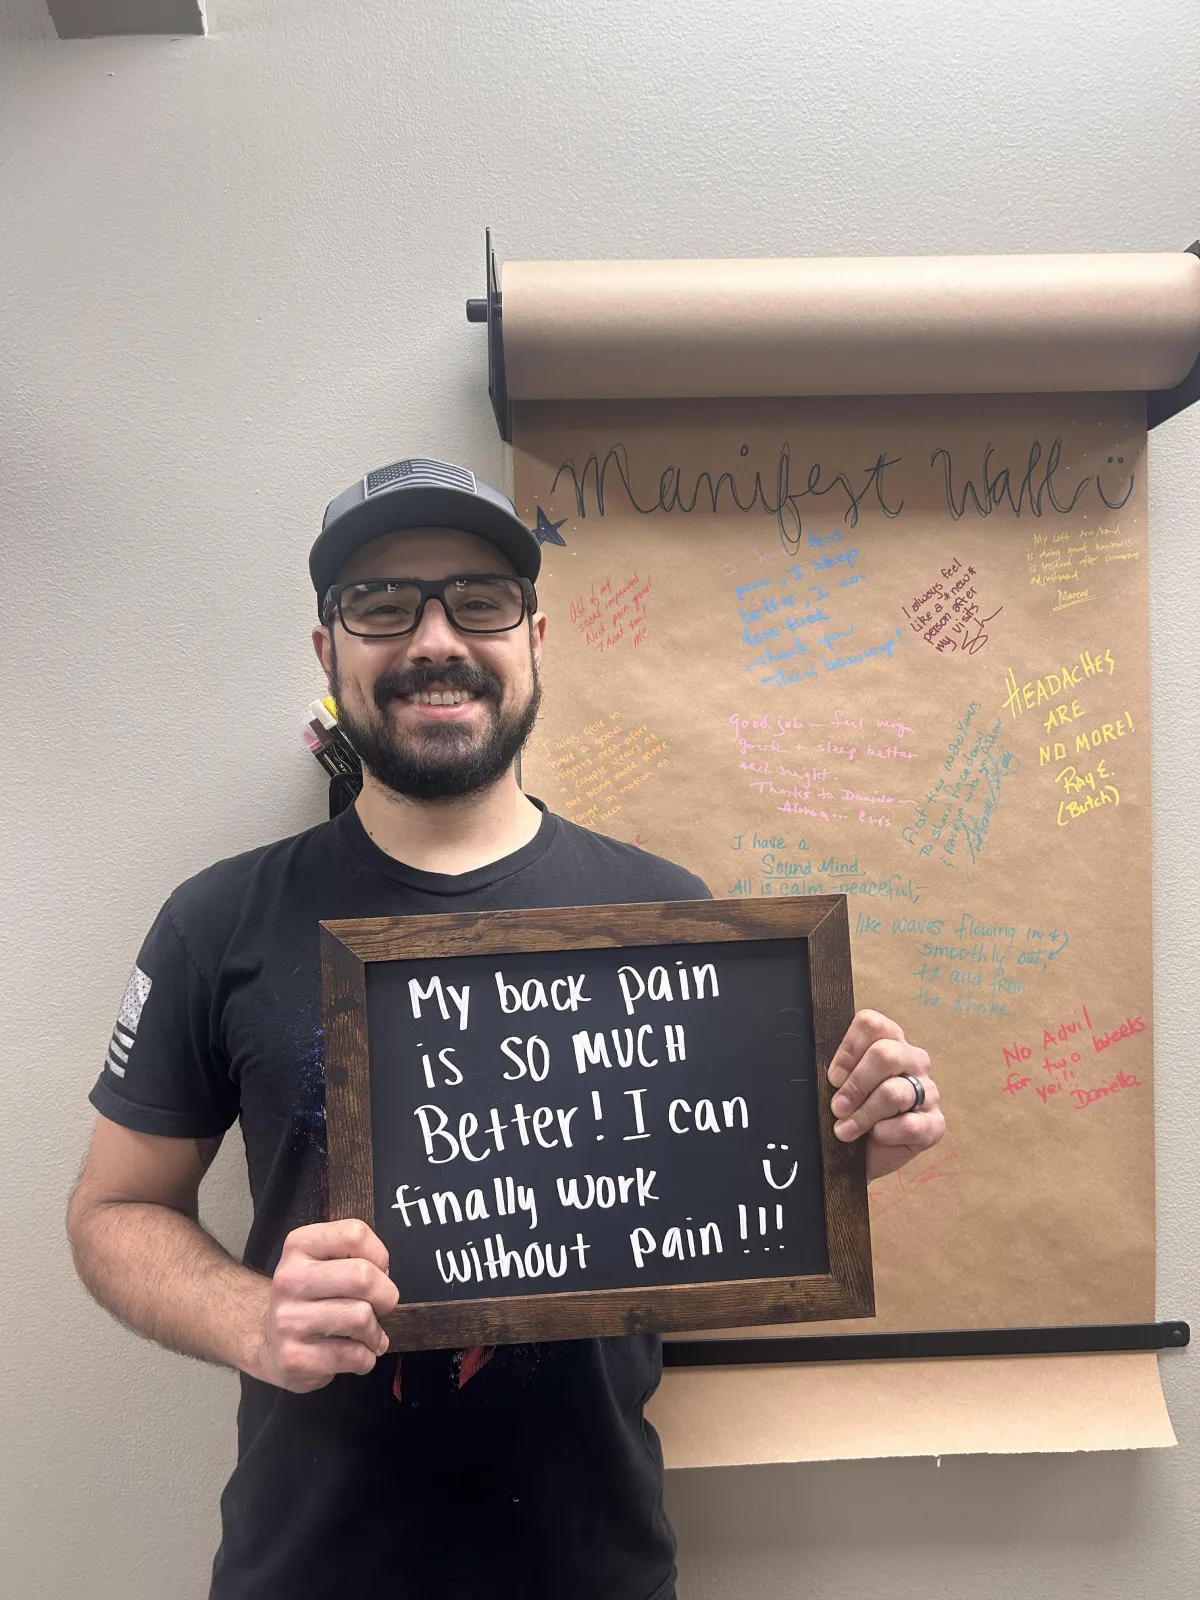 Manifest Wall
I have less
pain, I sleep
better, I am
less tired
Thank you
My left arm/hand
is doing great
is
adjustment
Marcus
All of my
improved
Neck pain gone!
Thank you!
MC
I always feel
like a *new*
person after
my visits
HEADACHES
ARE
NO MORE!
Ray E.
(Butch)
I was able to
have a good
nights rest after
a couple years of
not being
range in motion on
neck
good job - feel very
good + sleep better
each night.
Thanks to
Aloha...
First time in
I have a
Sound Mind,
All is calm - peaceful,
like waves flowing in &
smoothly out,
to and from
the shore.
No Advil
for two weeks
yei!!
Daniella
My back pain
is SO MUCH
Better! I can
finally work
without pain!!!